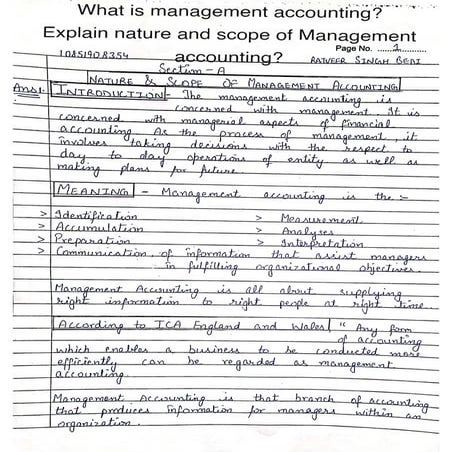 What is management accounting?
Explain nature and scope of Management
accounting?
Page No. 1
10851908354
RAJVEER SINGH BEAI
Section - A
NATURE & SCOPE OF MANAGEMENT ACCOUNTING
Ans1. INTRODUCTION - The management accounting is
concerned with management. It is
concerned with managerial aspects of financial
accounting. As the process of management, it
involves taking decisions with the respect to
day to day operations of entity as well as
making plans for future.
MEANING - Management accounting is the :-
> Identification > Measurement
> Accumulation > Analyses
> Preparation > Interpretation
> Communication of information that assist managers
in fulfilling organizational objectives.
Management Accounting is all about supplying
right information to right people at right time.
According to ICA England and Wales, " Any form
of accounting
which enables a business to be conducted more
efficiently can be regarded as management
accounting.
Management Accounting is that branch of accounting
that produces Information for managers within an
organization.